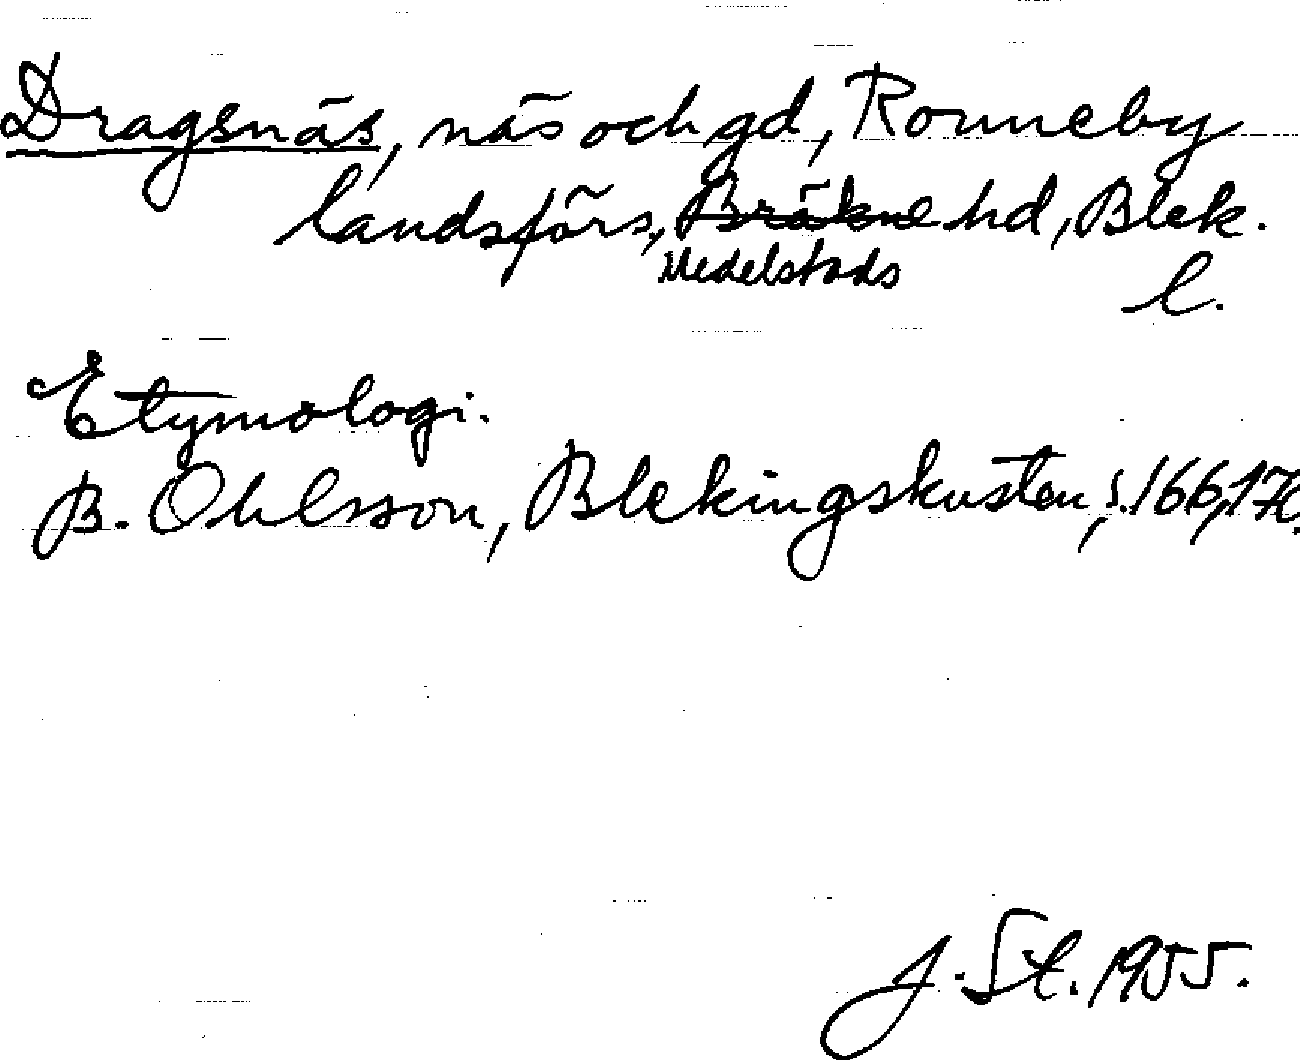 Dragsnäs, näs och gd, Ronneby
landsförs, Bräkne hd, Blek.
Medelstads
l.
Etymologi.
B. Ohlsson, Blekingskusten, s. 166,
J. St. 1955.